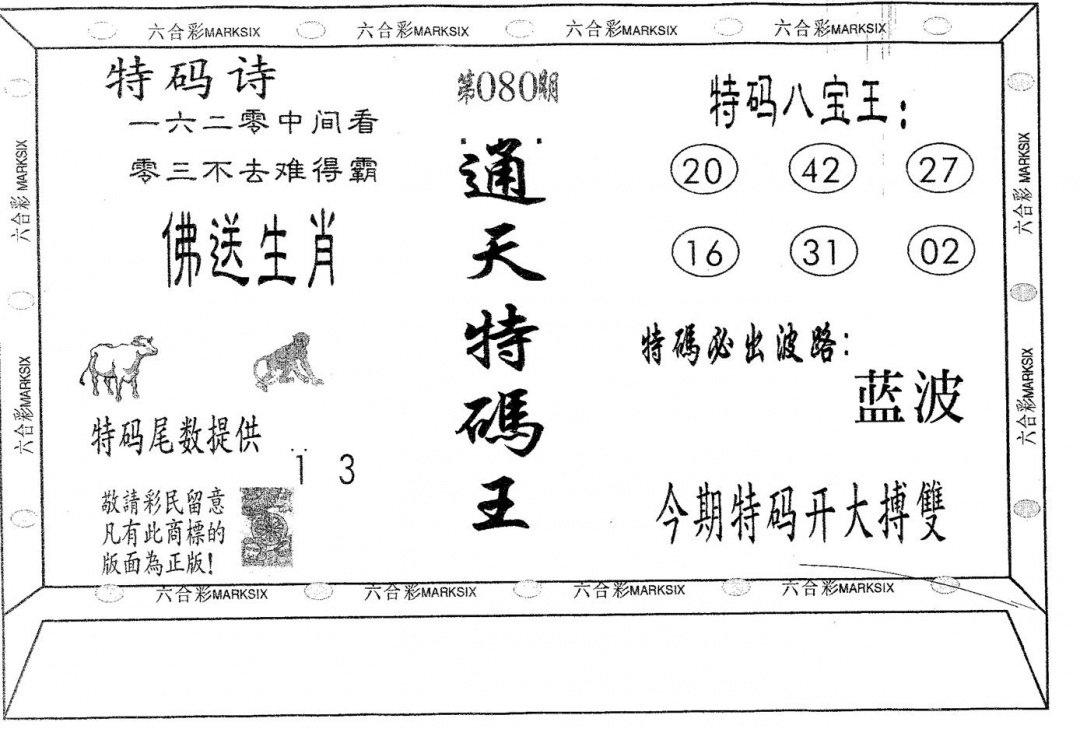 六合彩MARKSIX 六合彩MARKSIX 六合彩MARKSIX 六合彩MARKSIX
六合彩 MARKSIX
六合彩MARKSIX
特码诗
一六二零中间看
零三不去难得霸
佛送生肖
特码尾数提供:
1 3
敬請彩民留意
凡有此商標的
版面為正版!
第080期
通天特碼王
特码八宝王:
20 42 27
16 31 02
特碼必出波路:
蓝波
今期特码开大搏雙
六合彩 MARKSIX
六合彩MARKSIX
六合彩MARKSIX 六合彩MARKSIX 六合彩MARKSIX 六合彩MARKSIX